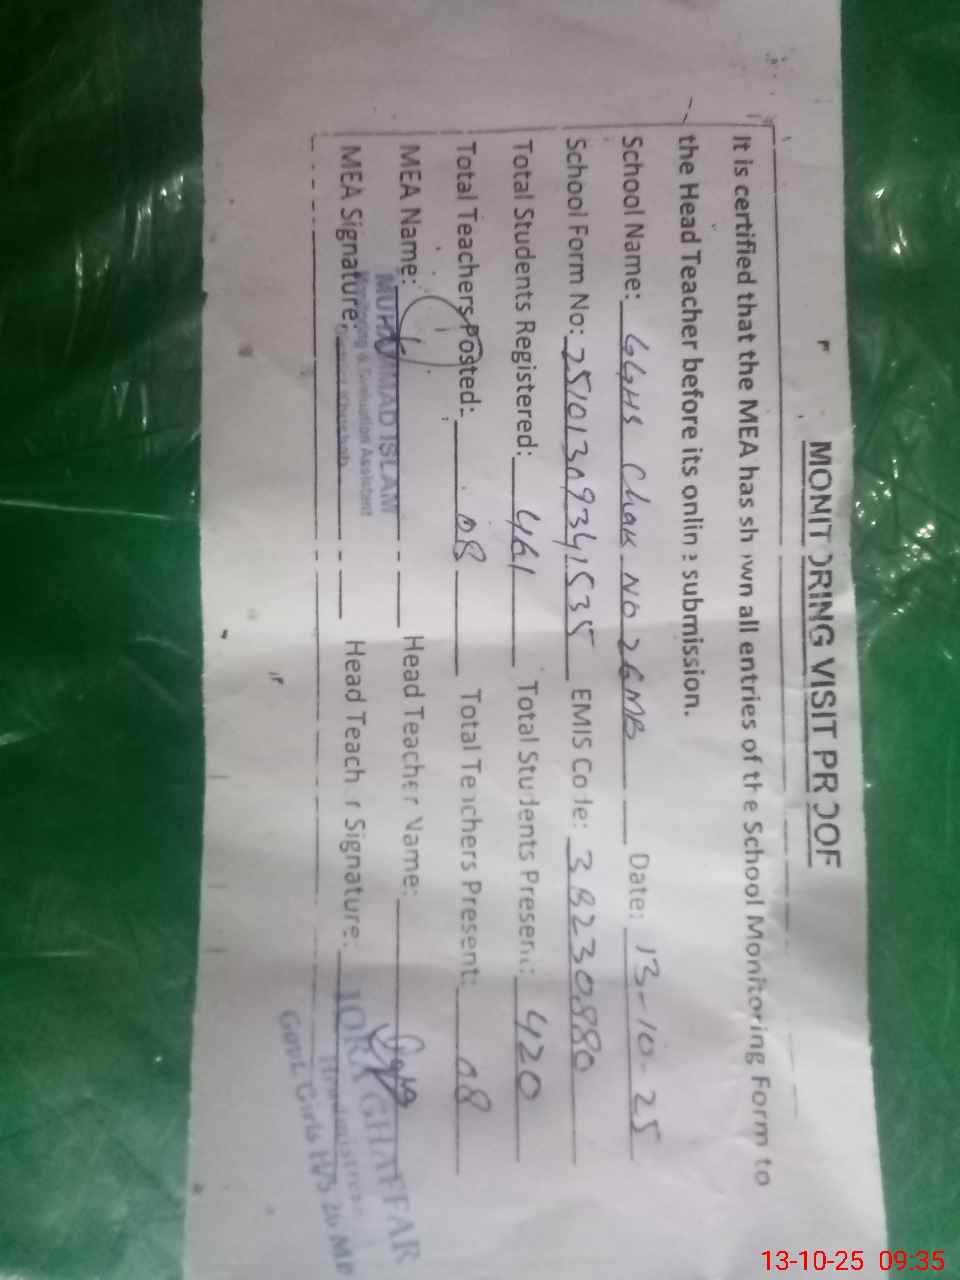 MONITORING VISIT PROOF
It is certified that the MEA has shown all entries of the School Monitoring Form to
the Head Teacher before its online submission.
School Name: GGHS Chak NO 26MB Date: 13-10-25
School Form No: 2510130934535 EMIS Code: 38230880
Total Students Registered: 461 Total Students Present: 420
Total Teachers Posted: 08 Total Teachers Present: 08
MEA Name: MUHAMMAD ISLAM Head Teacher Name:
Monitoring & Evaluation Assistant
MEA Signature: Head Teacher Signature: IQRA GHAFFAR
Headmistress
Govt. Girls H/S 26 MB
13-10-25 09:35